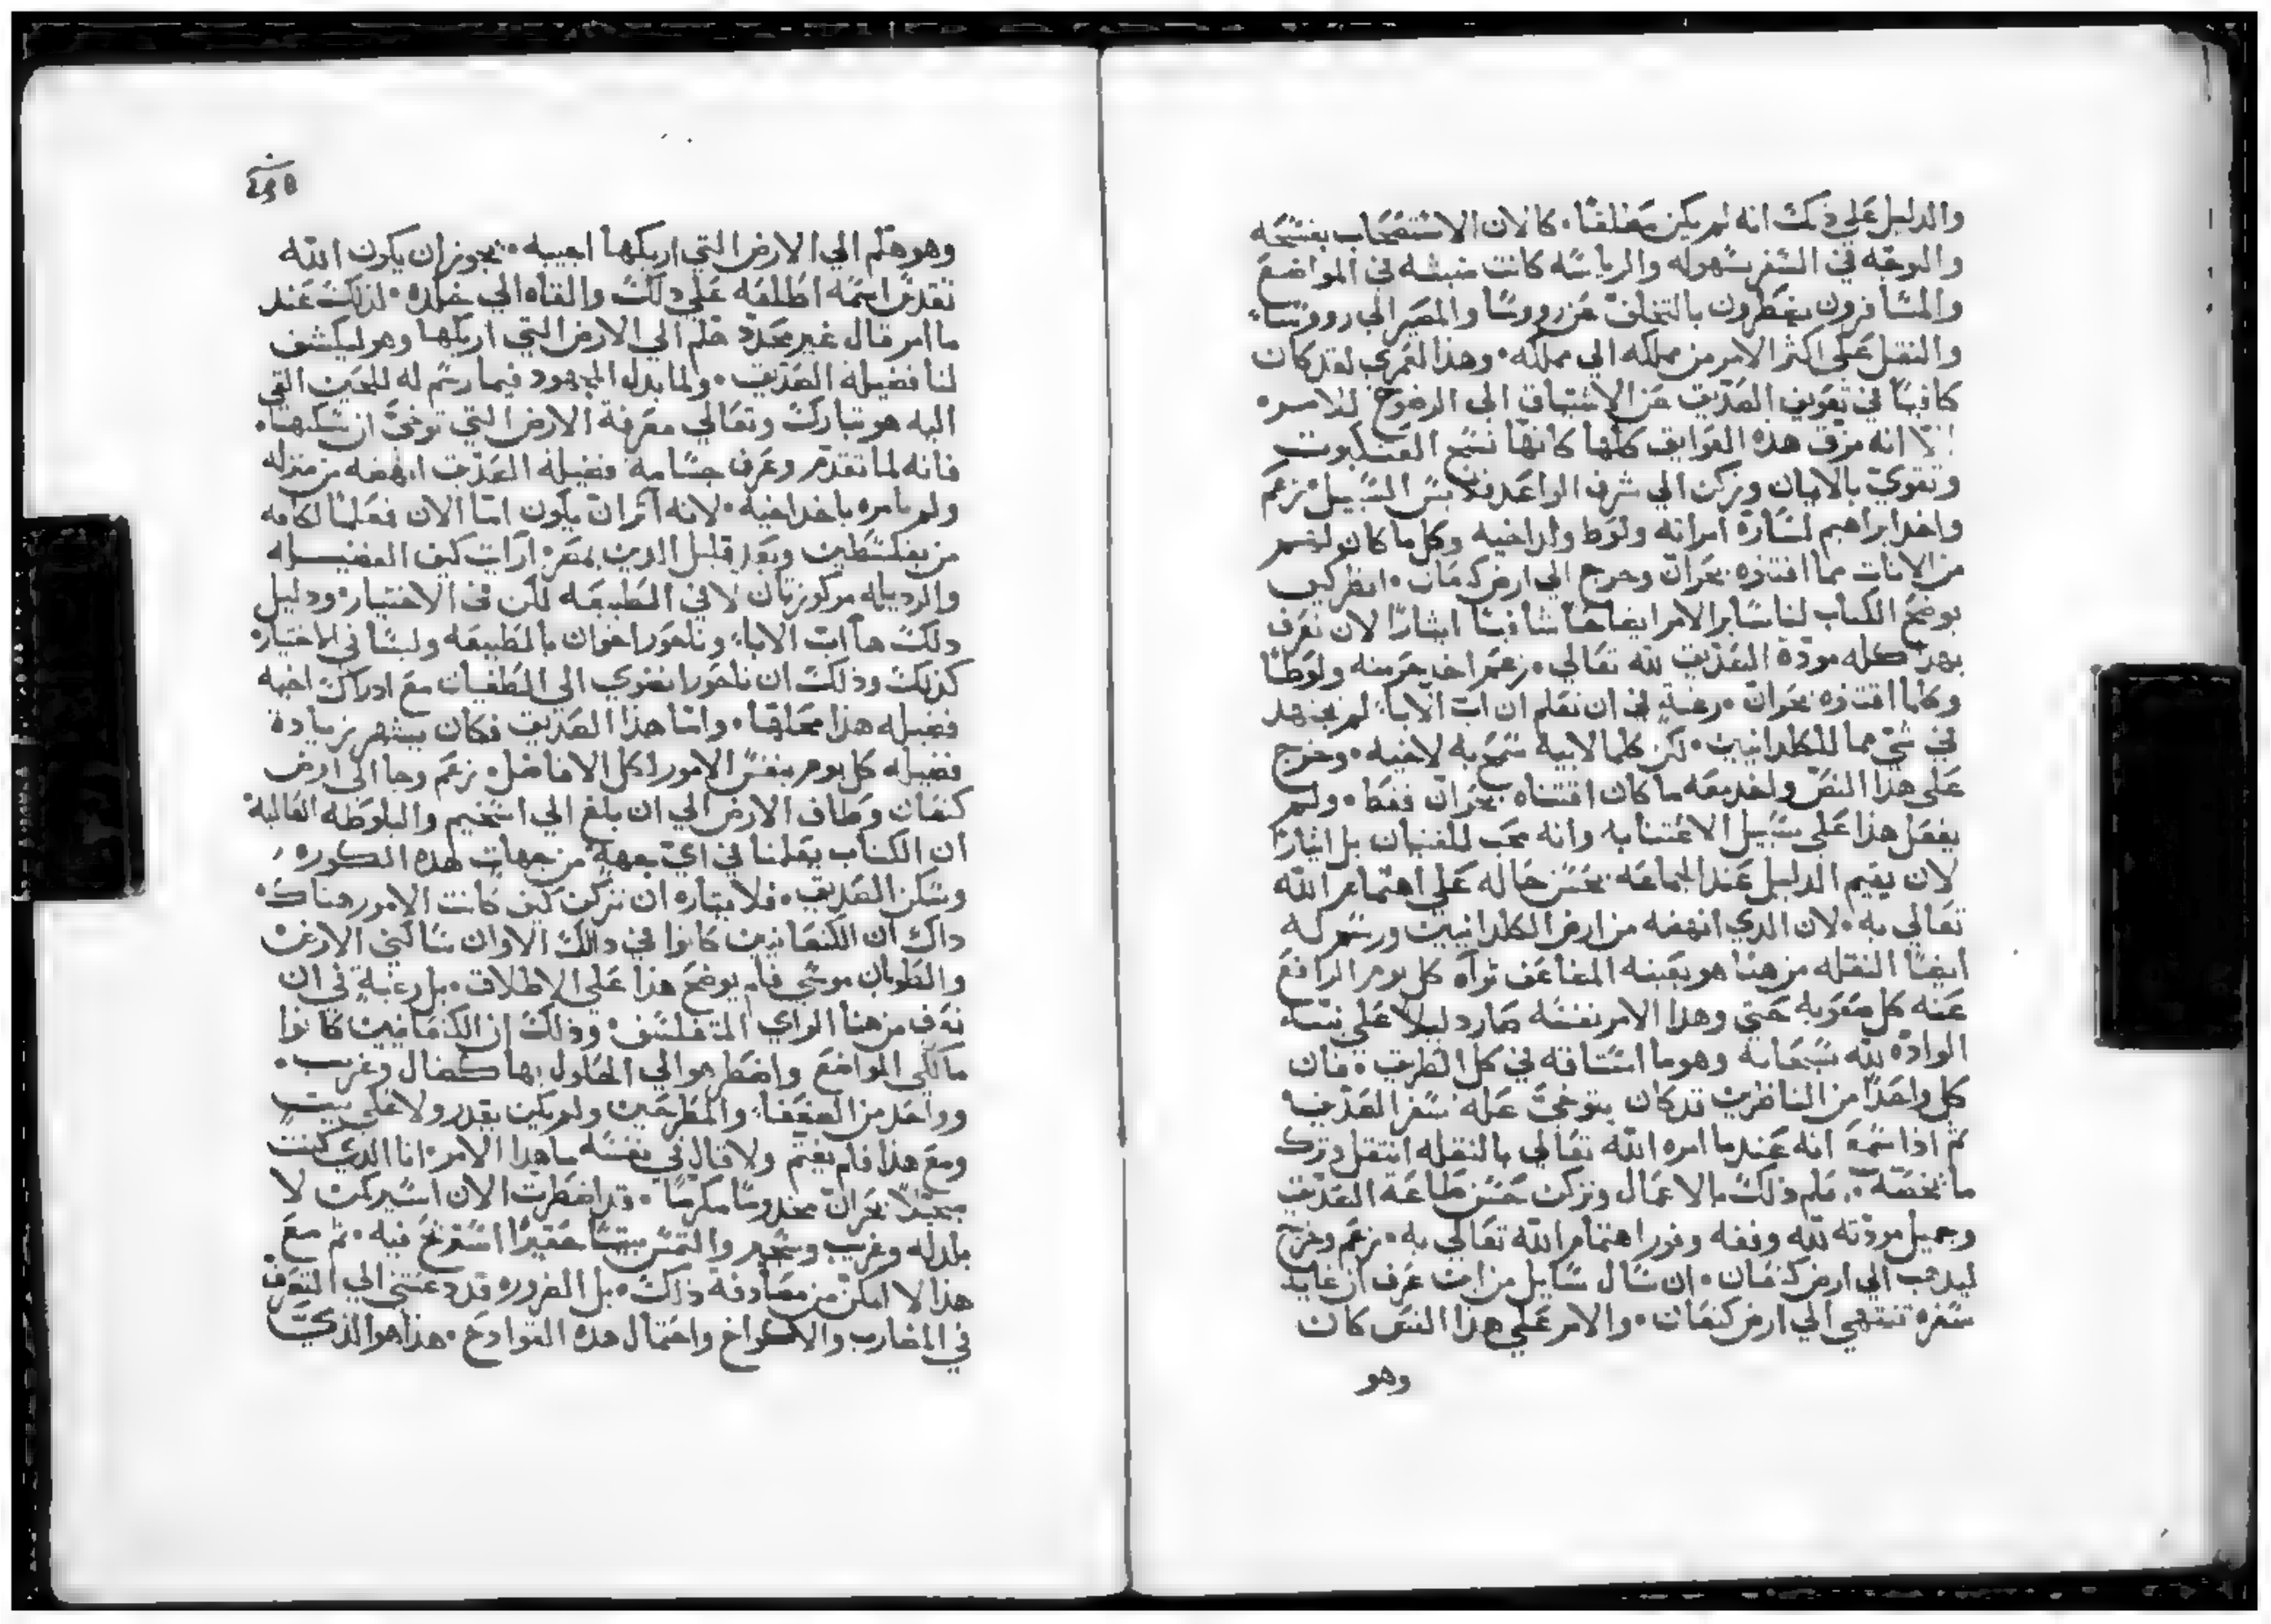 والدليل علي ذلك انه لم يكن مغلقا. كالان الاستصحاب بفسحه
والتوجه في السفر بسهوله والرياسه كانت منبثه في المواضع
والمسافرون يخطرون بالتخلف عن رووسا والمصير الي رووساء
والنقل علي اكثر الامر من مملكه الي مملكه. وهذا لعمري لقد كان
كافيا في تعويق الصديق عن الاشتياق الي الرضوخ للامر.
الا انه مزق هذه العوايق كلها كانها نسج العنكبوت
وتقوي بالايمان وركن الي شرف الواعد السبيل زعم
واخد ابراهيم لساره امراته ولوط وابن اخيه وكل ما كان لهم
من الاثات مما اقتنوه بحران وخرج الي ارض كنعان. انظر كيف
يوضح الكتاب لنا ساير الامر ايضاحا شافيا ايثارا لان نعرف
بهدا كله مودة الصديق لله تعالي. زعم اخد عرسه ولوطا
وكلما اقتنوه بحران. رغبة في ان نعلم ان اب الابا لم يجتهد
في شي مما للكلدانيين. لكن كلما لابيه سمح به لاخيه. وخرج
علي هذا النص ولم معه ما كان اقتناه بحران فقط. ولم
يفعل هذا علي سبيل الاعتنا به وانه محب للقنيان بل ايثارا
لان يقيم الدليل عند الجماعه بحسن حاله علي اهتمام الله
تعالي به. لان الدي انهضه من ارض الكلدانيين ورسم له
ايضا النقله من هنا هو بعينه المضاعف ثراه كل يوم الرافع
عنه كل صعوبه حتي وهذا الامر نفسه صار دليلا علي نيته
الوادة لله سبحانه وهو ما استاقه في كل الطريق. فان
كل واحدا من الناظرين قد كان يتوخي علة سفر الصديق
ثم ادا سمع انه عندما امره الله تعالي بالنقله انتقل وترك
ما يخصه. علم ذلك بالاعمال وزكن حسن طاعة الصديق
وجميل مودته لله وفور اهتمام الله تعالي به. زعم وخرج
ليدهب الي ارض كنعان. ان سال سايل من اين عرف ان غاية
سفره تنتهي الي ارض كنعان. والامر علي هذا النص كان
وهو
وهو هلم الي الارض التي اريكها اجيبه. يجوز ان يكون الله
تقدس اسمه اطلعه علي دلك والقاه الي خلده. لذلك عند
ما امر قال غير محدد هلم الي الارض التي اريكها وهو ليكشف
لنا فضيلة الصديق. ولما بدل المجهود فيما رسم له للحين القي
اليه هو تبارك وتعالي معرفة الارض التي توخي ان يسكنها.
فانه لما تقدم وعرف جسامة فضيلة الصديق انهضه من منزله
ولم يامره باخد اخيه. لانه اثر ان يكون اما الان فعلما لكافه
من بفلسطين وبعد قليل الدين بمصر ارايت كيف الفضيله
والرديله مركوزتان لا في الطبيعه لكن في الاختيار ودليل
دلك ها ان اب الابا وناحور اخوان بالطبيعه وليسا في الاختيار
كذلك ودلك ان ناحورا نغوي الي الطغيان مع ادراك اخيه
فضيله هذا محلها. واما هذا الصديق فكان يشهر زيادة
فضيله كل يوم بنفس الامور لكل الافاضل. زعم وجا الي ارض
كنعان وطاف الارض الي ان بلغ الي اشخيم والبلوطه العاليه
ان الكتاب يعلمنا في اي جهة من جهات هده الكوره
وسكن الصديق. فلا ان نزكن كيف كانت الامور هناك
داك ان الكنعانيين كانوا في دالك الاوان ساكني الارض
والطوبان موسي فلم يوضح هذا علي الاطلاق. بل رغبة في ان
نعرف من هنا الراي المتفلسف وذلك ان الكنعانيين كانوا
مالكي المواضع واضطر هو الي الحلول بها كضال وغريب.
وواحد من الضعفاء والمطرحين ولم يكن يقدر ولا علي بيت
ومع هذا فلم يغتم ولا قال في نفسه ما هدا الامر انا الدي كنت
مبجلا بحران مخدوما مكرما. قد اضطرت الان لا
وغريب والتمس بيتا حقيرا استريح فيه. ثم مع
هذا لا امكن من مصادفة ذلك. بل الضروره قد دعتني الي التصرف
في المضارب والاكواخ واحتمال هده القوادح. هذا هو الذي